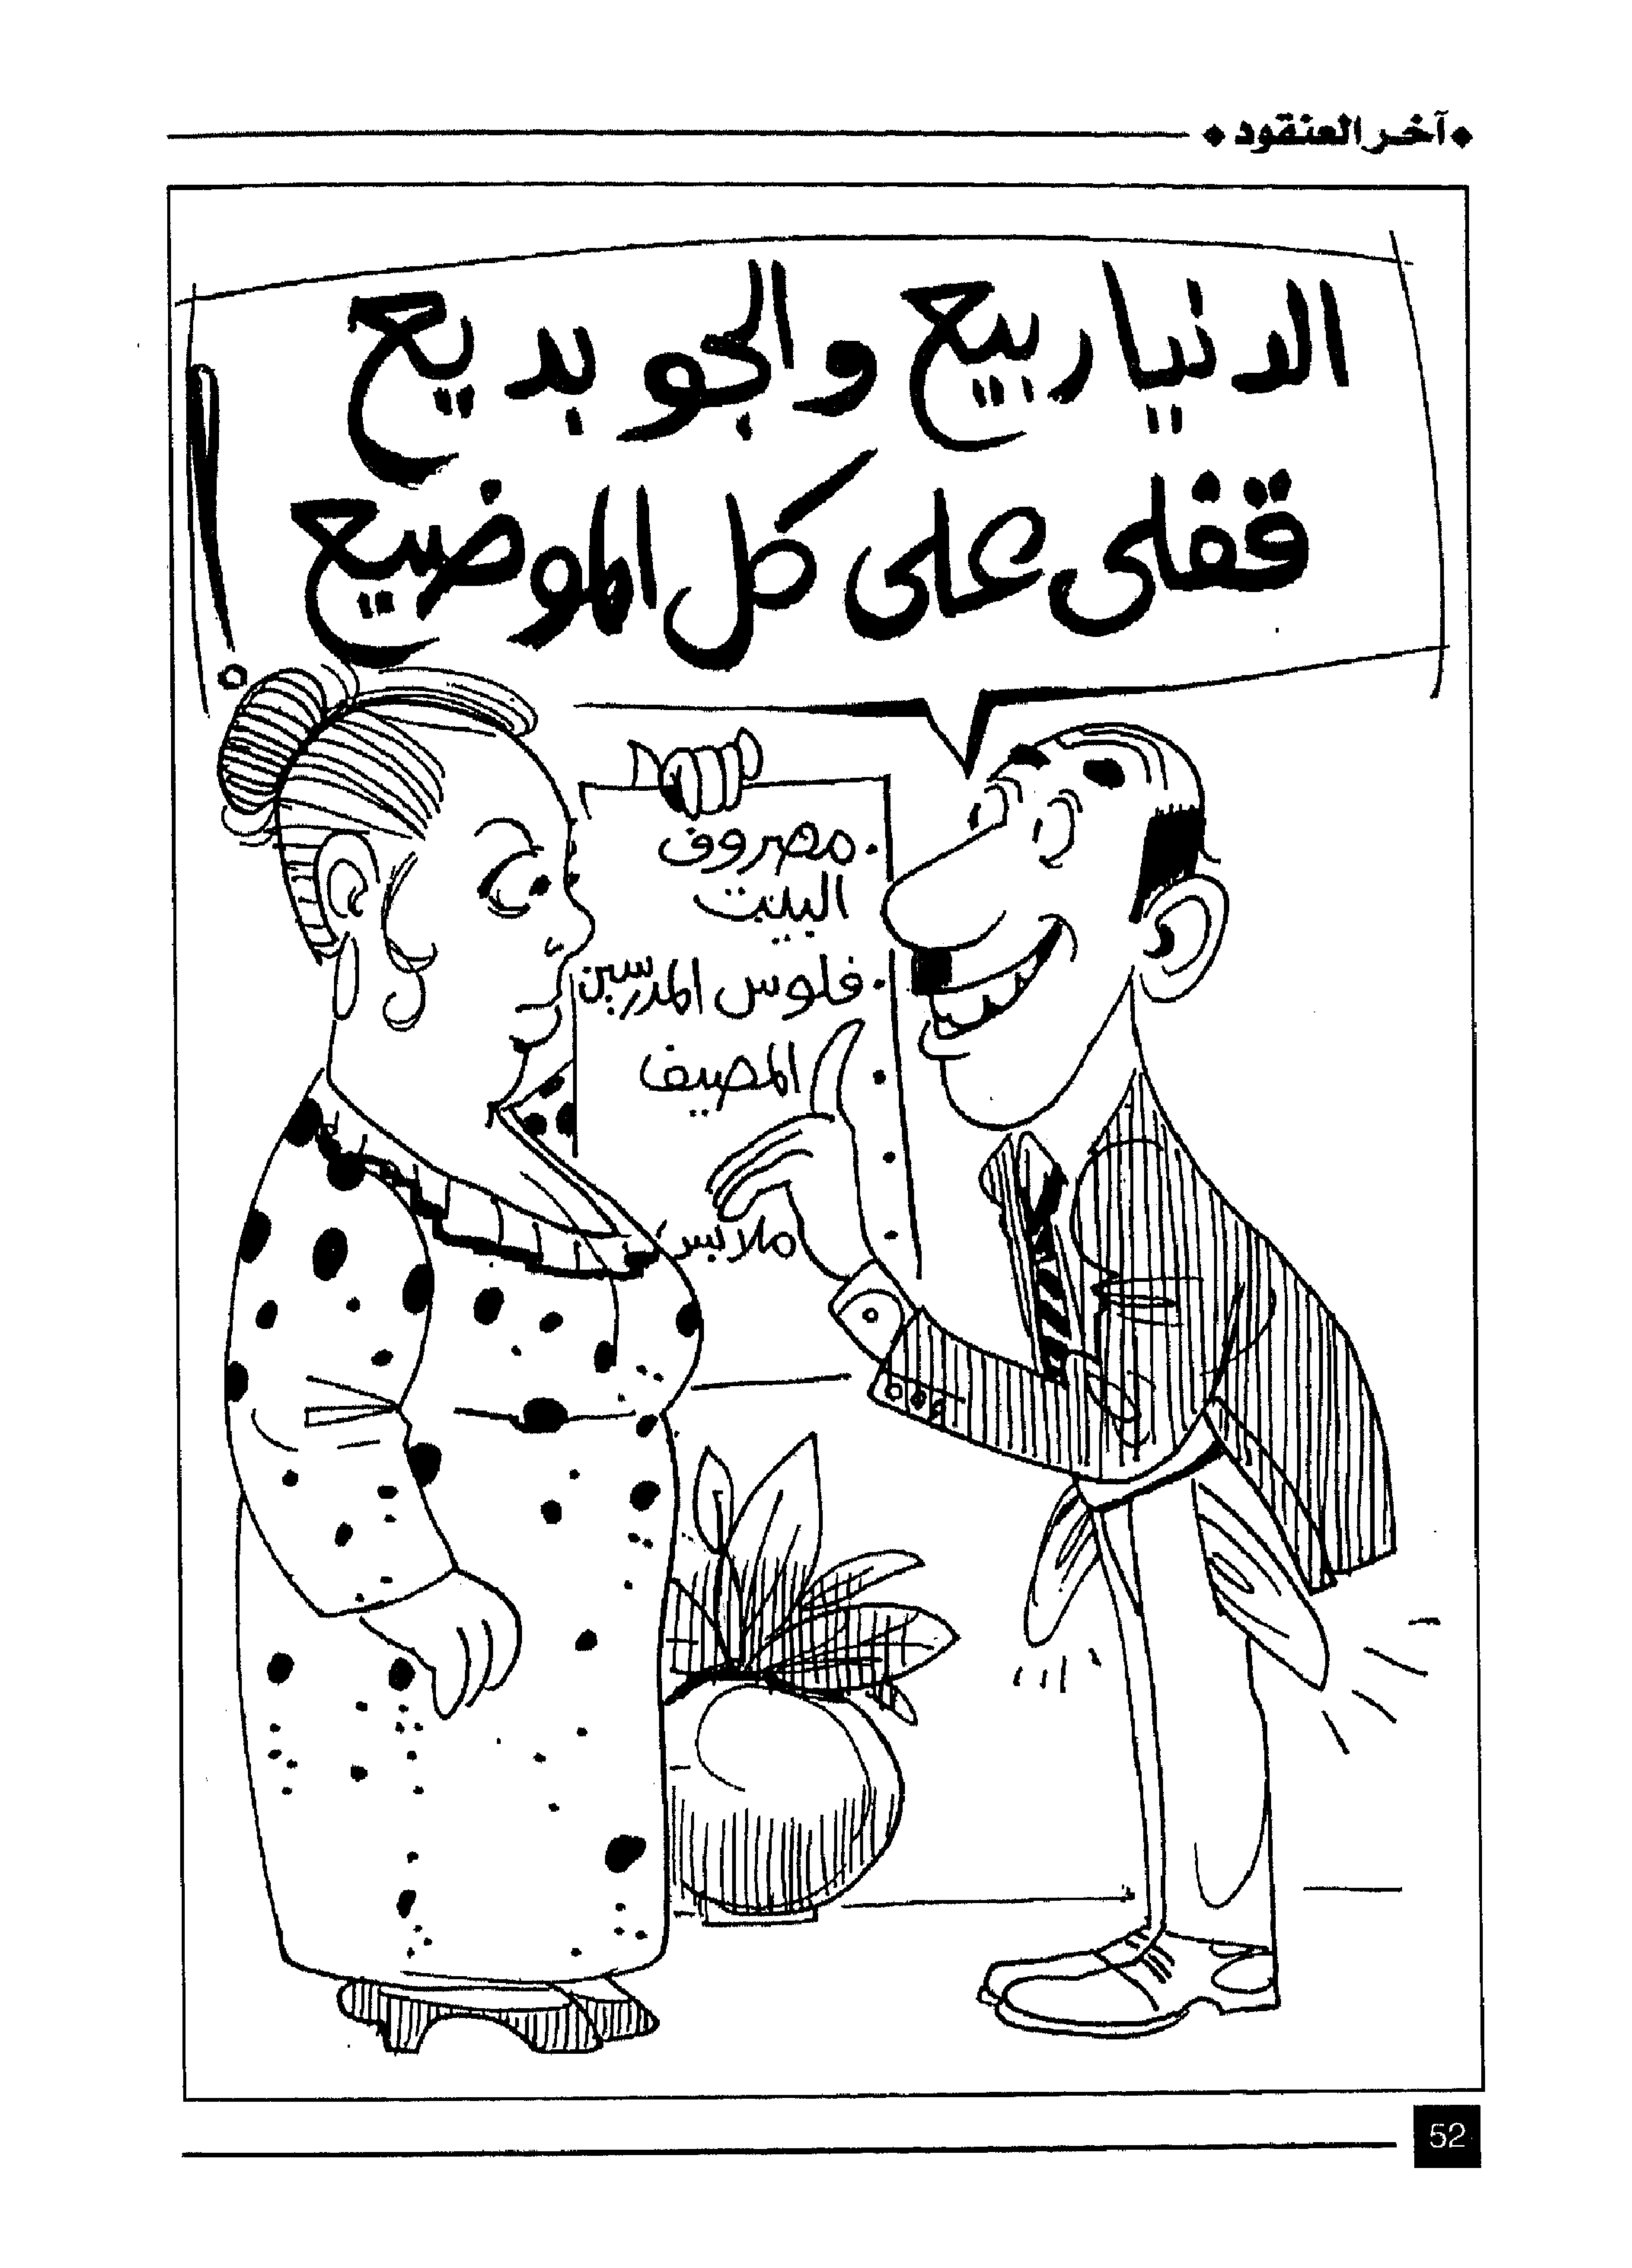 آخر العنقود
الدنيا ربيع والجو بديع
قفلى على كل الموضيع !
. مصروف
البيت
. فلوس المدرسين
. المصيف
ملابس
52